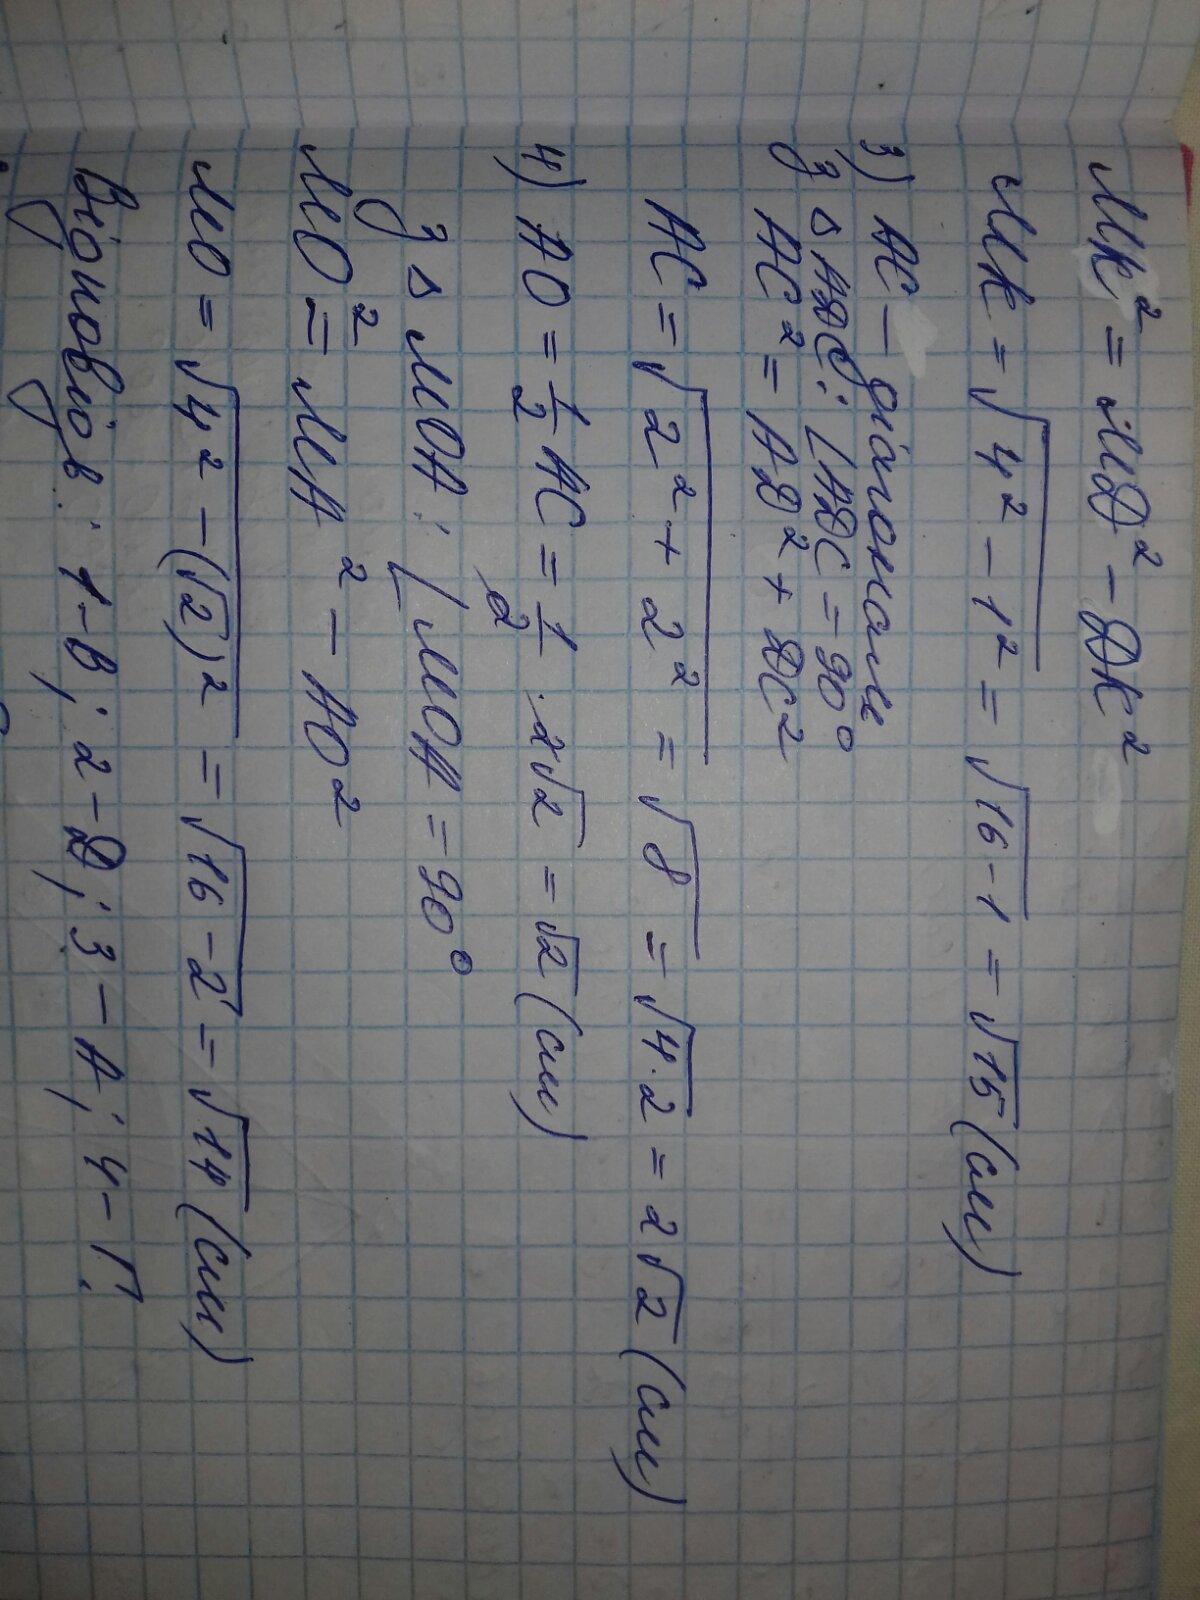 MK² = MD² - DK²
MK = √4² - 1² = √16 - 1 = √15 (см)
3) AC - діагональ
З △ ADC: ∠ADC = 90°
AC² = AD² + DC²
AC = √2² + 2² = √8 = √4·2 = 2√2 (см)
4) AO = 1/2 AC = 1/2 · 2√2 = √2 (см)
З △ MOA: ∠MOA = 90°
MO² = MA² - AO²
MO = √4² - (√2)² = √16 - 2 = √14 (см)
Відповідь: 1-В; 2-Д; 3-А; 4-Г.